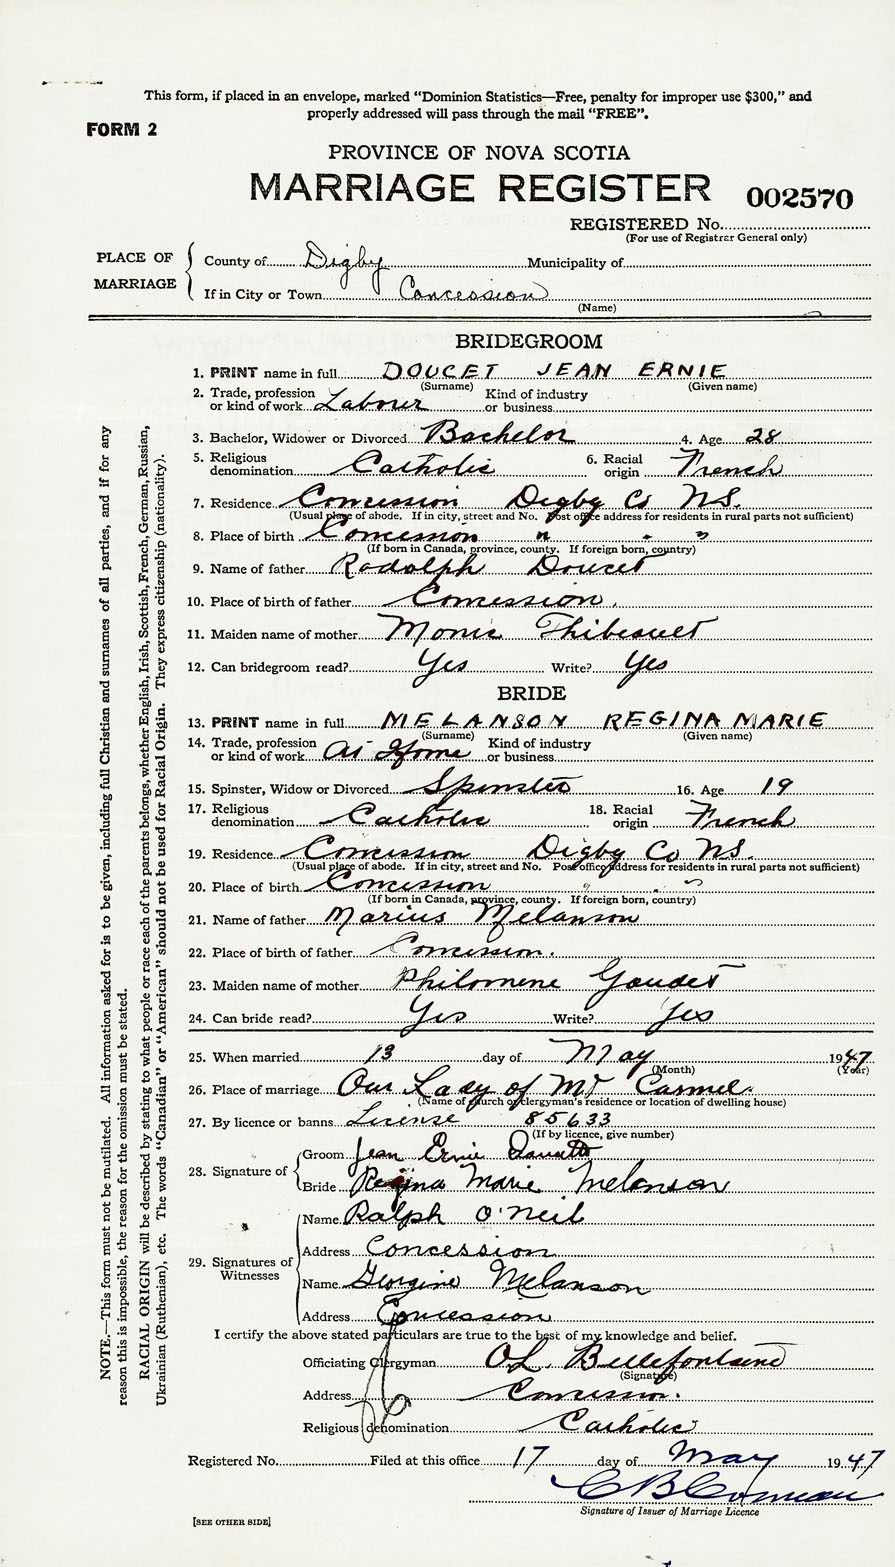 This form, if placed in an envelope, marked “Dominion Statistics—Free, penalty for improper use $300,” and
properly addressed will pass through the mail “FREE”.
FORM 2
PROVINCE OF NOVA SCOTIA
MARRIAGE REGISTER 002570
REGISTERED No.
(For use of Registrar General only)
PLACE OF MARRIAGE
County of Digby Municipality of
If in City or Town Concession
(Name)
BRIDEGROOM
1. PRINT name in full DOUCET JEAN ERNIE
(Surname) (Given name)
2. Trade, profession or kind of work Laborer Kind of industry or business
3. Bachelor, Widower or Divorced Bachelor 4. Age 28
5. Religious denomination Catholic 6. Racial origin French
7. Residence Concession Digby Co N.S.
(Usual place of abode. If in city, street and No. Post office address for residents in rural parts not sufficient)
8. Place of birth Concession " " "
(If born in Canada, province, county. If foreign born, country)
9. Name of father Rodolph Doucet
10. Place of birth of father Concession.
11. Maiden name of mother Monic Thibeault
12. Can bridegroom read? Yes Write? Yes
BRIDE
13. PRINT name in full MELANSON REGINA MARIE
(Surname) (Given name)
14. Trade, profession or kind of work At Home Kind of industry or business
15. Spinster, Widow or Divorced Spinster 16. Age 19
17. Religious denomination Catholic 18. Racial origin French
19. Residence Concession Digby Co N.S.
(Usual place of abode. If in city, street and No. Post office address for residents in rural parts not sufficient)
20. Place of birth Concession " " "
(If born in Canada, province, county. If foreign born, country)
21. Name of father Marius Melanson
22. Place of birth of father Concession.
23. Maiden name of mother Philomene Gaudet
24. Can bride read? Yes Write? Yes
25. When married 13 day of May 1947
(Month) (Year)
26. Place of marriage Our Lady of Mt Carmel.
(Name of church or clergyman’s residence or location of dwelling house)
27. By licence or banns License 85633
(If by licence, give number)
28. Signature of
Groom Jean Ernie
Bride Regina Marie Melanson
29. Signatures of Witnesses
Name Ralph O'Neil
Address Concession
Name Georgine Melanson
Address Concession
I certify the above stated particulars are true to the best of my knowledge and belief.
Officiating Clergyman O.L. Bellefontaine
(Signature)
Address Concession.
Religious denomination Catholic
Registered No. Filed at this office 17 day of May 1947
C B Comeau
Signature of Issuer of Marriage Licence
[SEE OTHER SIDE]
NOTE.—This form must not be mutilated. All information asked for is to be given, including full Christian and surnames of all parties, and if for any
reason this is impossible, the reason for the omission must be stated.
RACIAL ORIGIN will be described by stating to what people or race each of the parents belongs, whether English, Irish, Scottish, French, German, Russian,
Ukrainian (Ruthenian), etc. The words “Canadian” or “American” should not be used for Racial Origin. They express citizenship (nationality).